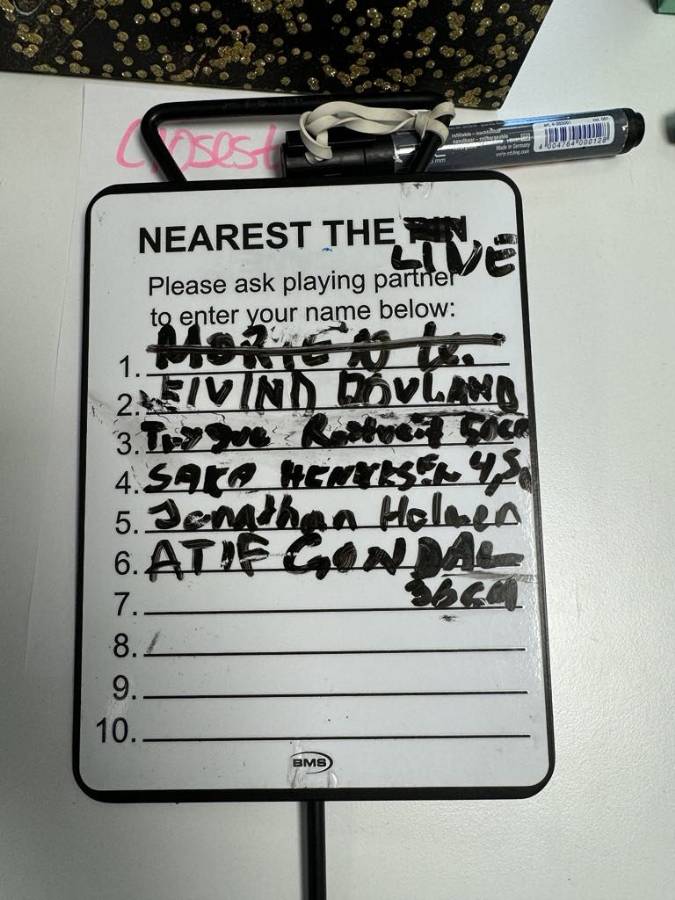 Closest
NEAREST THE PIN
LIVE
Please ask playing partner
to enter your name below:
1.
2. EIVIND DOVLAND
3. Trygve 50cm
4. SARA HENRIKSEN 4,5
5. Jonathan Holmen
6. ATIF GONDAL
7. 36cm
8.
9.
10.
BMS
Made in Germany
4 004764 000128